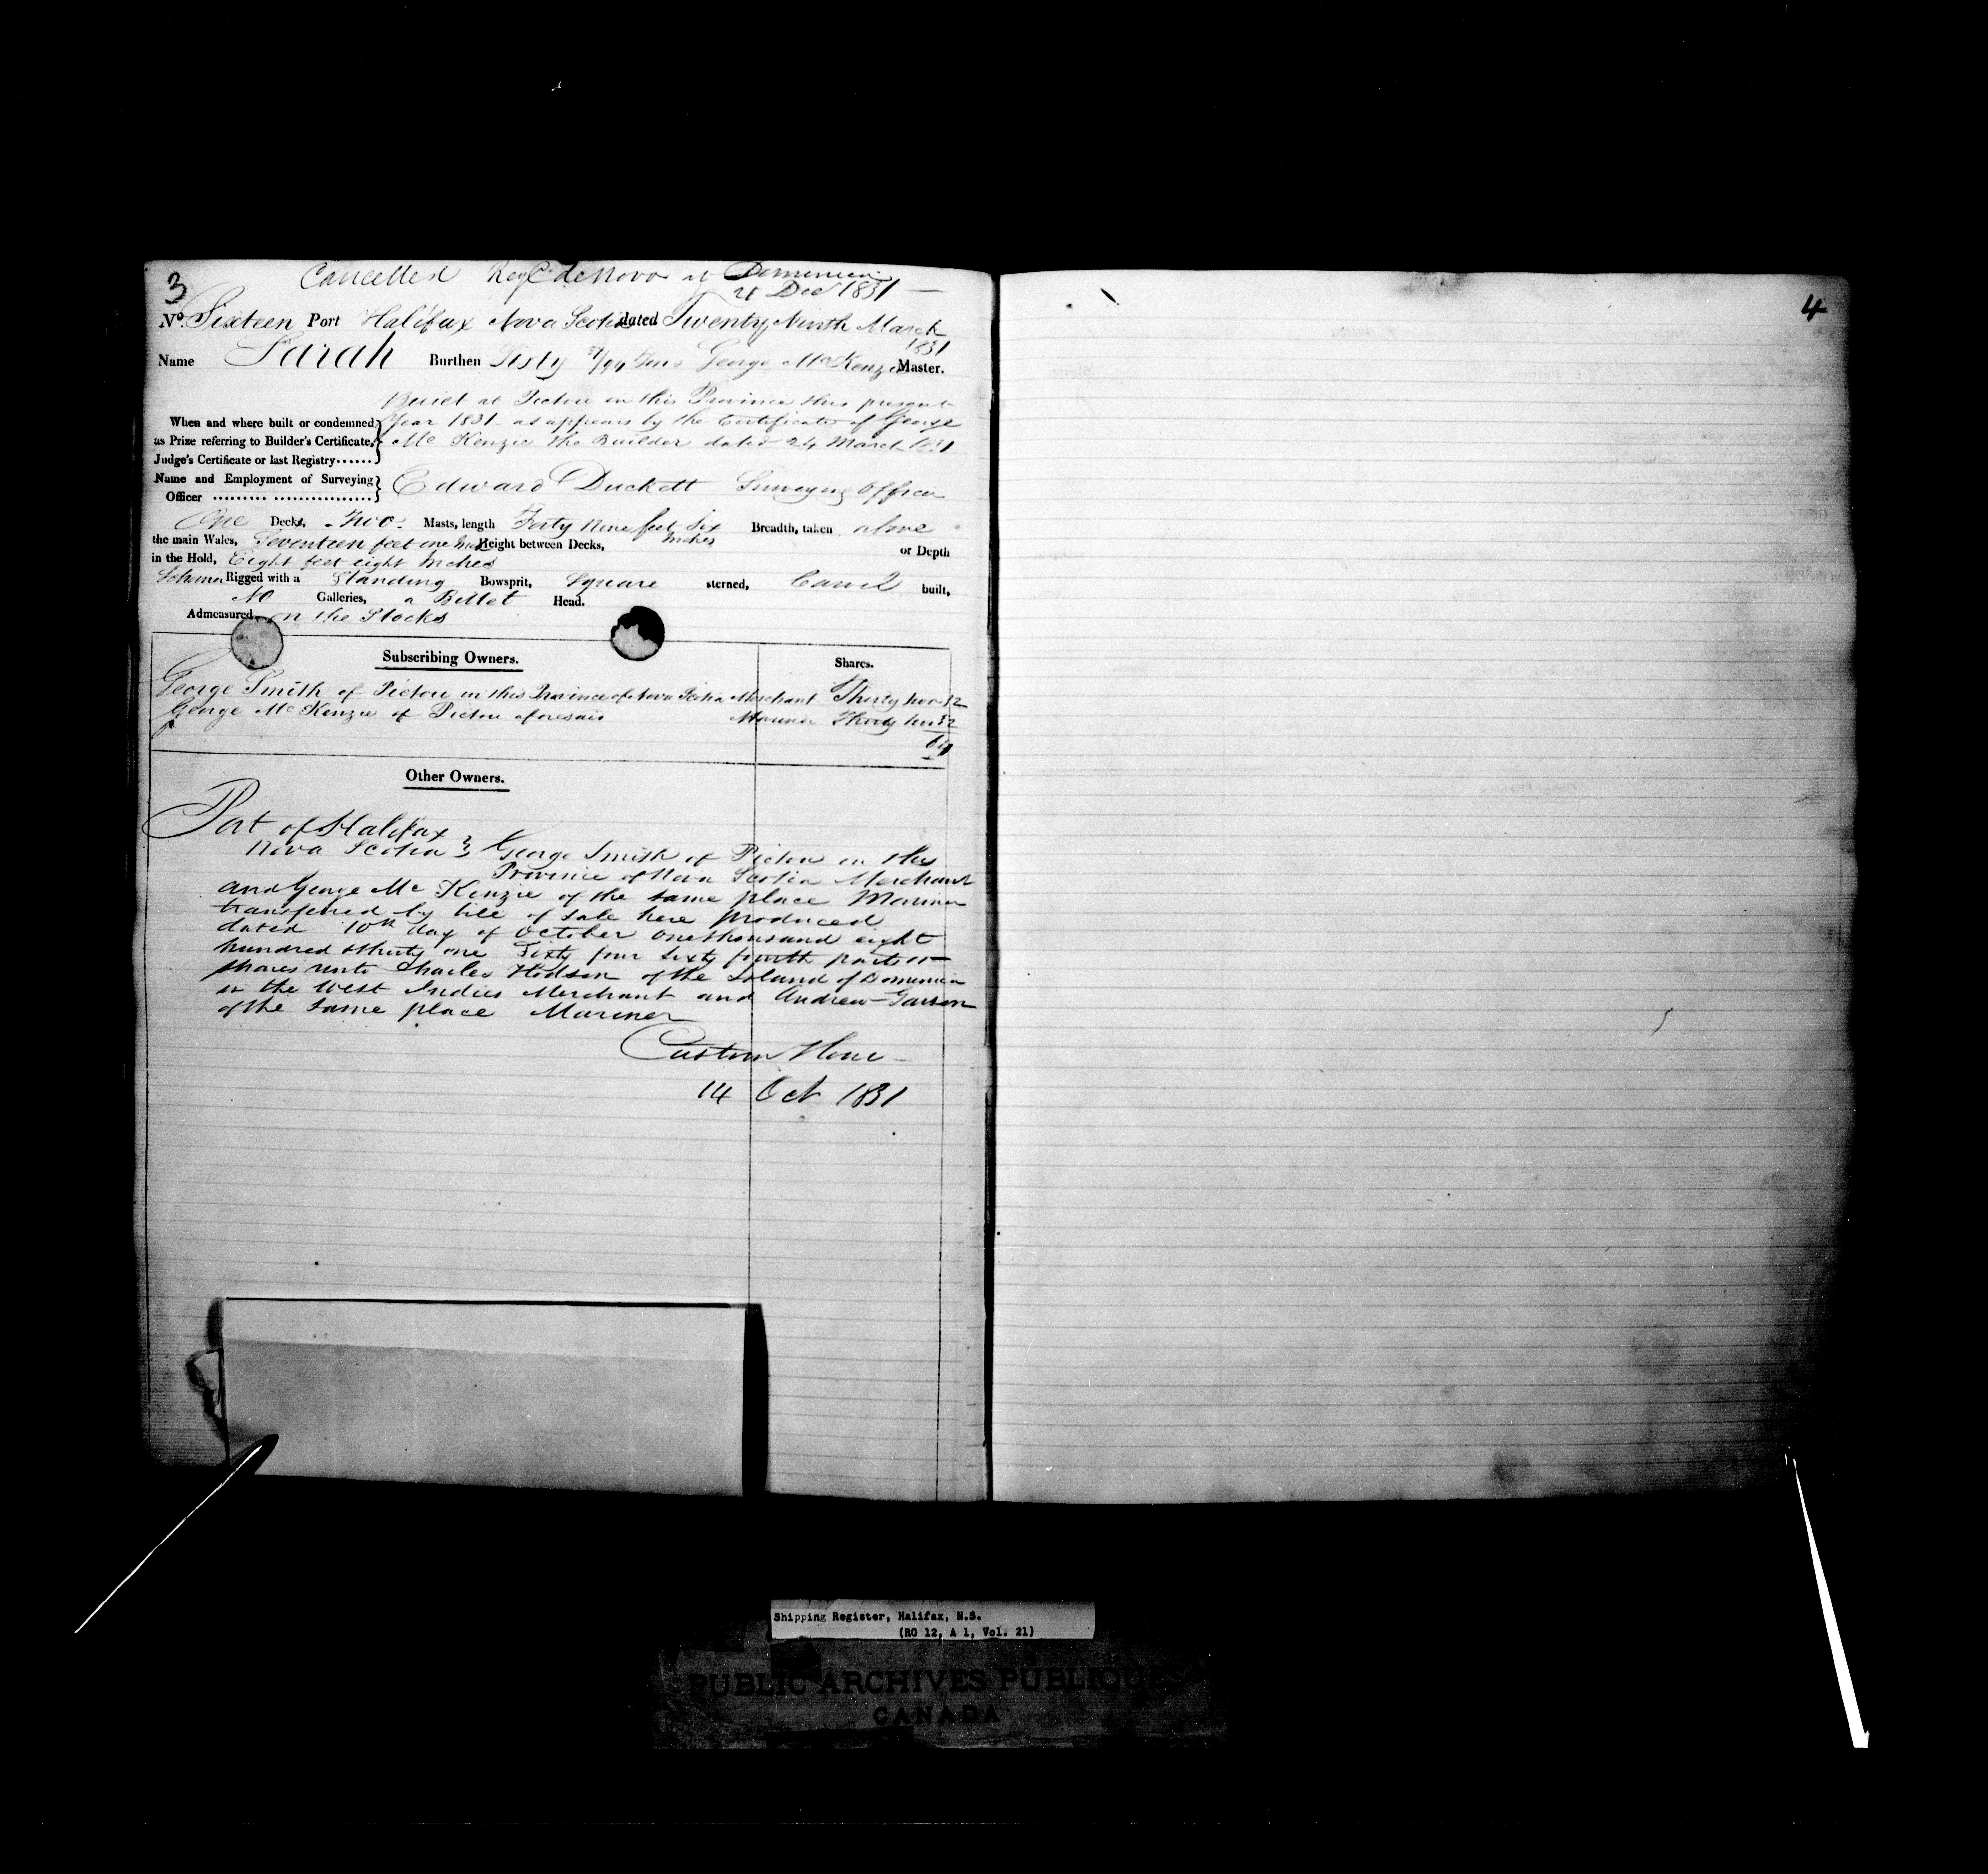 3
Cancelled Reg<sup>d</sup> de Novo at Dominica
21 Dec 1831
No. Sixteen Port Halifax Nova Scotia dated Twenty Ninth March 1831
Name Sarah Burthen Sixty /94 Tons George McKenzie Master.
Built at Pictou in this Province this present
When and where built or condemned year 1831 as appears by the Certificate of George
as Prize referring to Builder's Certificate, McKenzie the Builder dated 24 March 1831
Judge's Certificate or last Registry......
Name and Employment of Surveying
Officer .......... ................. Edward Duckett Surveying Officer
One Decks, Two Masts, length Forty Nine feet Six Inches Breadth, taken above
the main Wales, Seventeen feet one Inch Height between Decks, or Depth
in the Hold, Eight feet eight Inches
Schoner Rigged with a Standing Bowsprit, Square sterned, Carvel built,
No Galleries, a Billet Head.
Admeasured on the Stocks
Subscribing Owners. Shares.
George Smith of Pictou in this Province of Nova Scotia Merchant Thirty two 32
George McKenzie of Pictou aforesaid Mariner Thirty two 32
64
Other Owners.
Port of Halifax
Nova Scotia } George Smith of Pictou in the
Province of Nova Scotia Merchant
and George McKenzie of the same place Mariner
transferred by bill of sale here produced
dated 10th day of October one thousand eight
hundred & thirty one Sixty four sixty fourth parts or
shares unto Charles Hodson of the Island of Dominica
in the West Indies Merchant and Andrew
of the same place Mariner
Custom House
14 Oct 1831
4
Shipping Register, Halifax, N.S.
(RG 12, A 1, Vol. 21)
PUBLIC ARCHIVES PUBLIQUES
CANADA